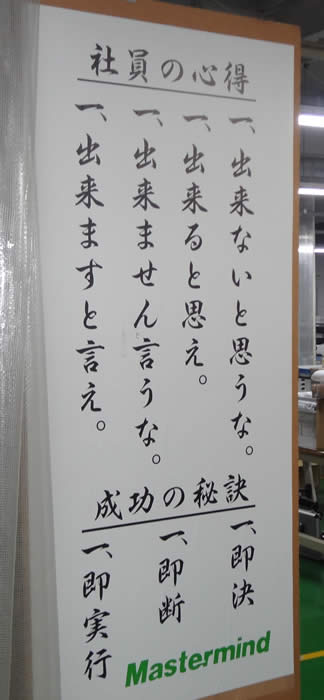 社員の心得
一、出来ないと思うな。
一、出来ると思え。
一、出来ません言うな。
一、出来ますと言え。
成功の秘訣
一、即決
一、即断
一、即実行
Mastermind